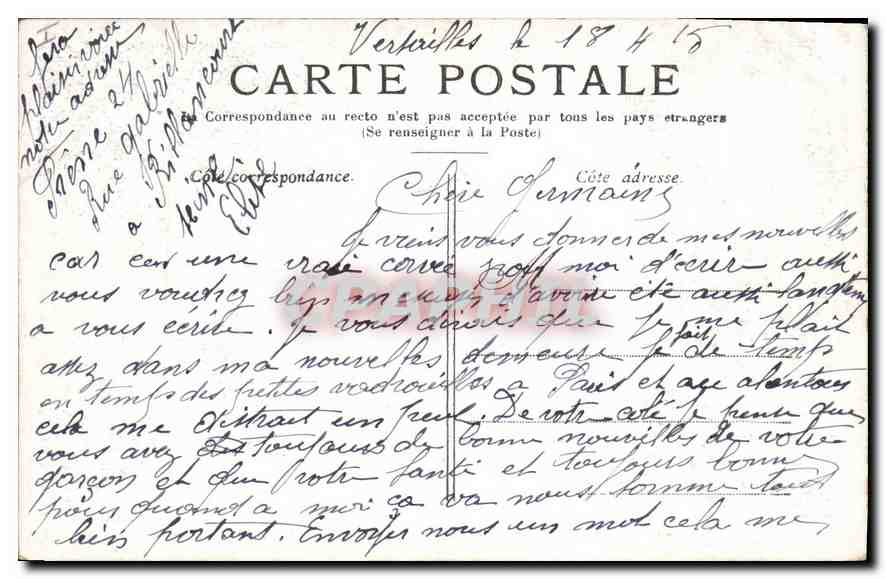 Versailles le 18 4 15
CARTE POSTALE
La Correspondance au recto n'est pas acceptée par tous les pays étrangers
(Se renseigner à la Poste)
Côté correspondance.
Côté adresse.
Chère Germaine
Je viens vous donner de mes nouvelles
car ces une vraie corvée pour moi d'écrire aussi
vous voudrez bien d'avoire été aussi langtemp
a vous écrire. Je vous dirais que je me plait
assez dans ma nouvelles demeure je fait de temp
en temps des petites vadrouilles a Paris et au alentour
cela me distrait un peut. De votre coté je pense que
vous avez toujours de bonne nouvelles de votre
garçon et que votre santé et toujours bonne
pour quand a moi ça va nous somme tous
bien portant. Envoyer nous un mot cela me
fera
plaisir voici
notre adresse
24
Rue Gabrielle
a Billancourt
Seine